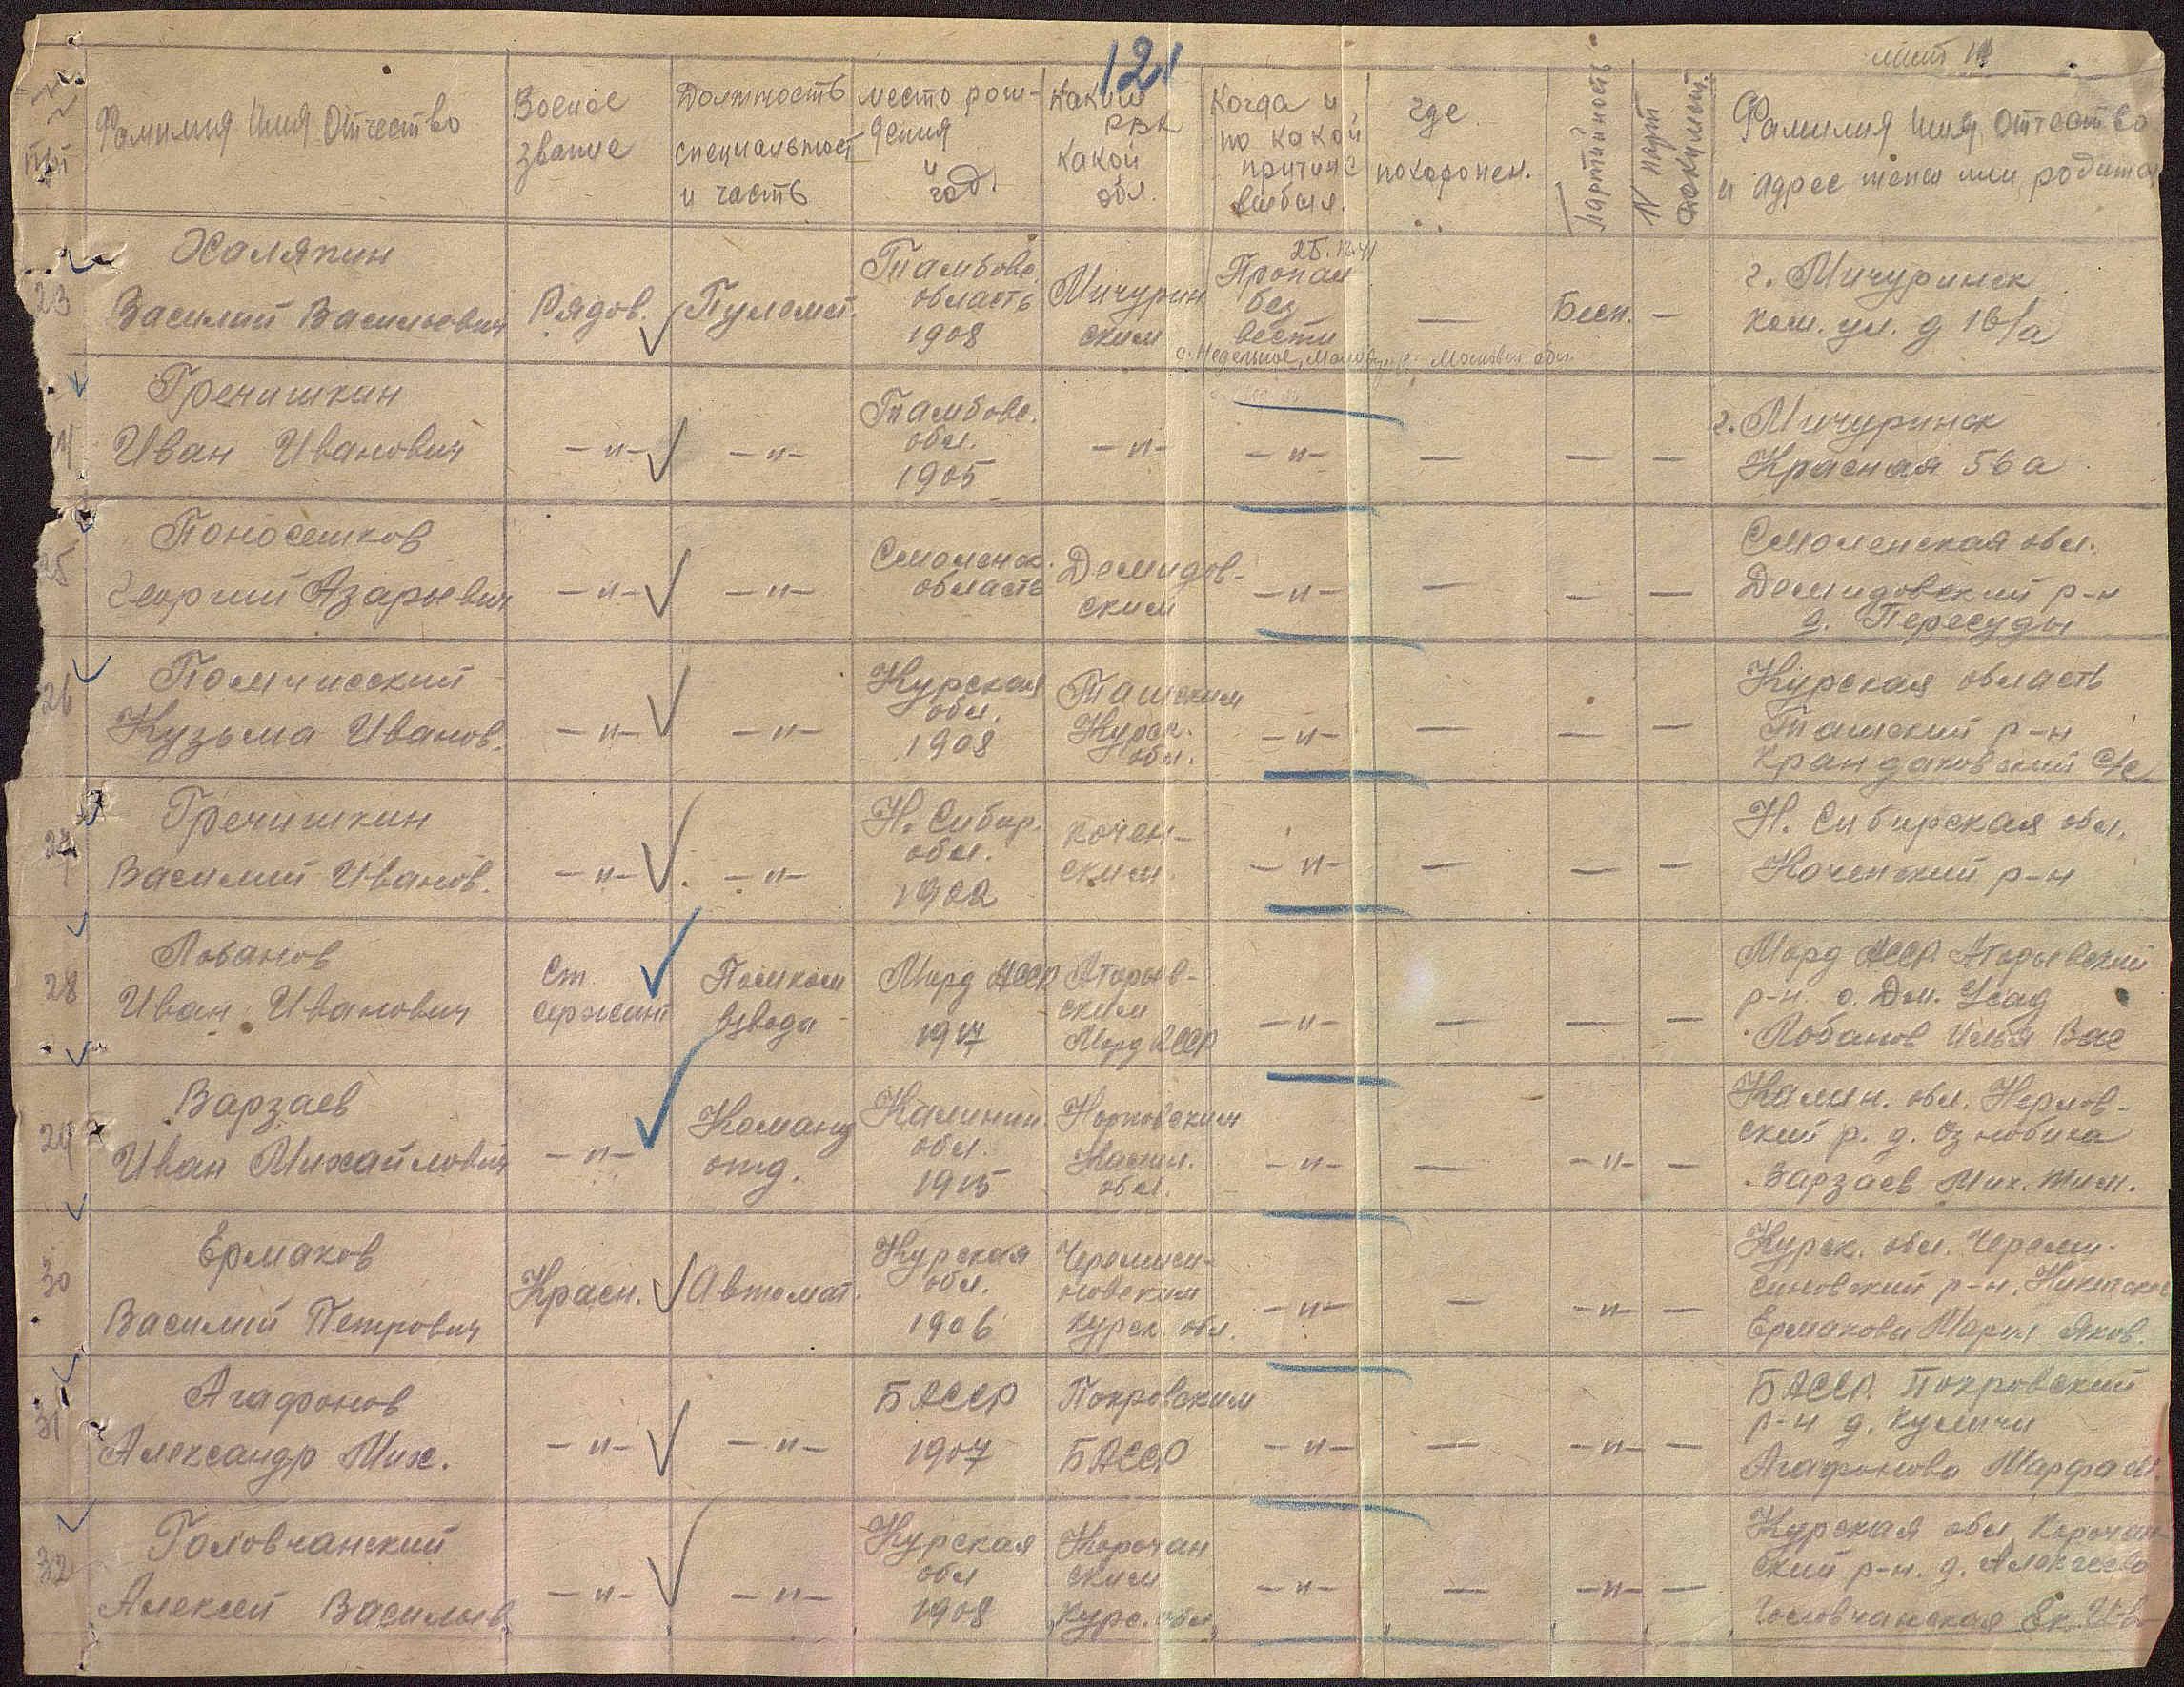 121
лист 11
№№ пп
Фамилия Имя Отчество
Военое звание
Должность специальност и часть
место рождения и год.
Каким РВК какой обл.
Когда и по какой причине выбыл.
где похоронен.
Партийность
N парт документ.
Фамилия Имя, Отчество и адрес жены или родител
23
Халяпин
Василий Васильевич
Рядов.
Пулемет.
Тамбовс. область 1908
Мичуринским
25.12.41
Пропал без вести
с. Недельное, Малояр. р. Московск обл.
—
Бесп.
—
г. Мичуринск
ком. ул. д 16/а
Гречишкин
Иван Иванович
—"—
—"—
Тамбовс. обл. 1905
—"—
—"—
—
—
—
г. Мичуринск
Красная 56а
25
Поносенков
Георгий Азарьевич
—"—
—"—
Смоленск. область
Демидовским
—"—
—
—
—
Смоленская обл.
Демидовский р-н
д. Пересуды
26
Кузьма Иванов.
—"—
—"—
Курская обл. 1908
Тимским Курс. обл.
—"—
—
—
—
Курская область
Тимский р-н
с/с
27
Гречишкин
Василий Иванов.
—"—
—"—
Н. Сибир. обл. 1902
Коченским.
—"—
—
—
—
Н. Сибирская обл.
Коченский р-н
28
Лобанов
Иван Иванович
Ст. сержант
Помком взвода
Морд АССР 1917
Аторьевским Морд АССР
—"—
—
—
—
Морд АССР. Аторьевский
р-н. с. Дм. Усад
Лобанов Илья Вас
29
Варзаев
Иван Михайлович
—"—
Команд отд.
Калинин. обл. 1915
Калин. обл.
—"—
—
—"—
—
Калин. обл. Нерлов-
ский р. д. Ознобиха
Варзаев Мих. Тим.
30
Ермаков
Василий Петрович
Красн.
Автомат.
Курская обл. 1906
Черемисиновским Курск. обл.
—"—
—
—"—
—
Курск. обл. Череми-
синовский р-н.
Ермакова Мария Яков.
31
Агафонов
Александр Мих.
—"—
—"—
БАССР 1907
Покровским БАССР
—"—
—
—"—
—
БАССР. Покровский
р-н д. Куличи
Агафонова Марфа
32
Головчанский
Алексей Васильев.
—"—
—"—
Курская обл 1908
Корочанским Курс. обл.
—"—
—
—"—
—
Курская обл Корочан-
ский р-н. д.
Головчанская Ек. Ив